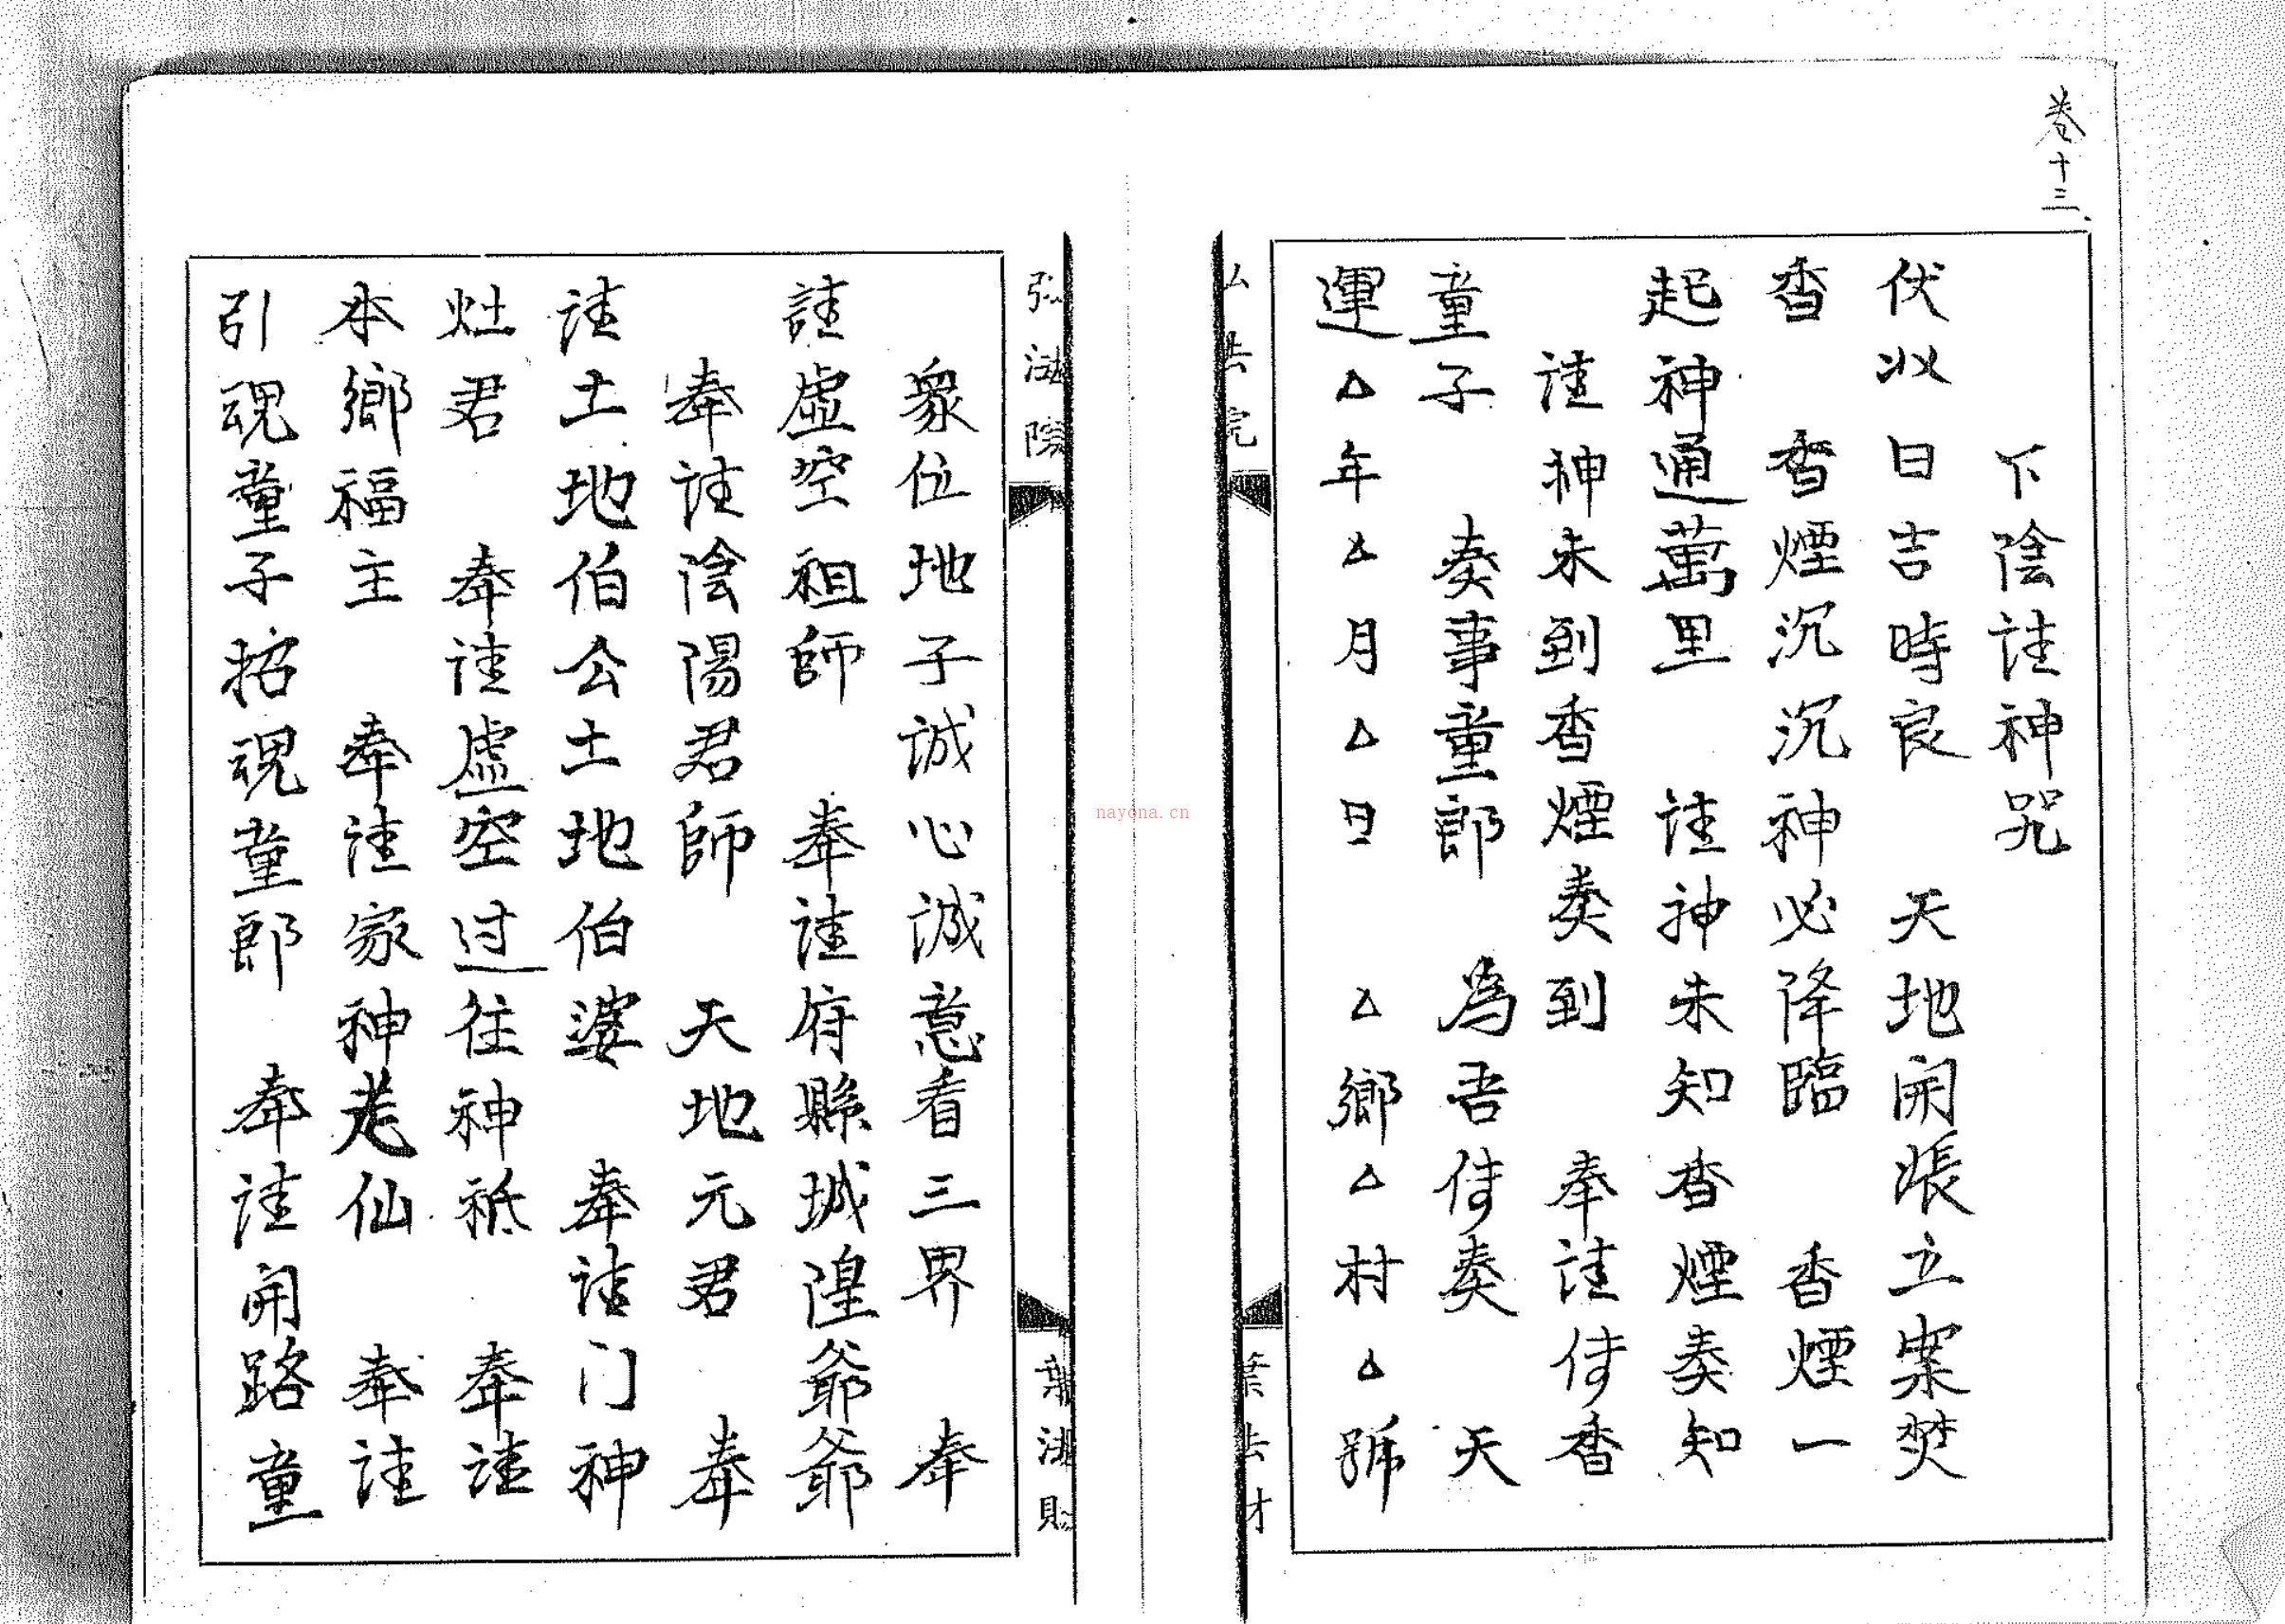 卷十三
下陰請神咒
伏以日吉時良　天地開張立案焚
香　香煙沉沉神必降臨　香煙一
起神通萬里　請神未知香煙奏知
請神未到香煙奏到　奉請侍香
童子　奏事童郎　為吾侍奏　天
運△年△月△日　△鄉△村△號
弘法院
葉法財
眾位地子誠心誠意看三界　奉
請虛空祖師　奉請府縣城隍爺爺
奉請陰陽君師　天地元君　奉
請土地伯公土地伯婆　奉請门神
灶君　奉請虛空过往神祇　奉請
本鄉福主　奉請家神老仙　奉請
引魂童子招魂童郎　奉請開路童
nayona.cn